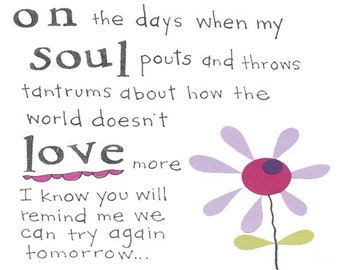 on the days when my
soul pouts and throws
tantrums about how the
world doesn't
love more
I know you will
remind me we
can try again
tomorrow...